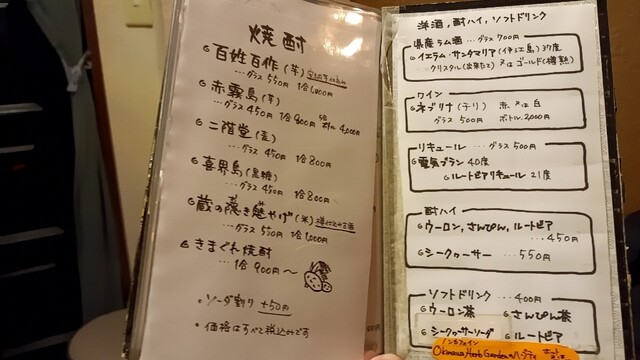 焼酎
百姓百作(芋)
…グラス550円 1合1,000円
赤霧島(芋)
…グラス450円 1合800円 ボトル4,000円
二階堂(麦)
…グラス450円 1合800円
喜界島(黒糖)
…グラス450円 1合800円
(米)
…グラス550円 1合1,000円
きまぐれ焼酎
…1合900円〜
ソーダ割り +50円
価格はすべて税込みです
洋酒, 酎ハイ, ソフトドリンク
県産ラム酒…グラス700円
イエラム・サンタマリア(伊江島)37度
クリスタル(出来たて)又はゴールド(樽熟)
ワイン
ネブリナ(チリ) 赤又は白
グラス500円 ボトル2,000円
リキュール…グラス500円
電気ブラン40度
ルートビアリキュール21度
酎ハイ
ウーロン, さんぴん, ルートビア
…450円
シークヮーサー…550円
ソフトドリンク…400円
ウーロン茶 さんぴん茶
シークヮーサーソーダ ルートビア
ノンカフェイン
Okinawa Herb Gardenの